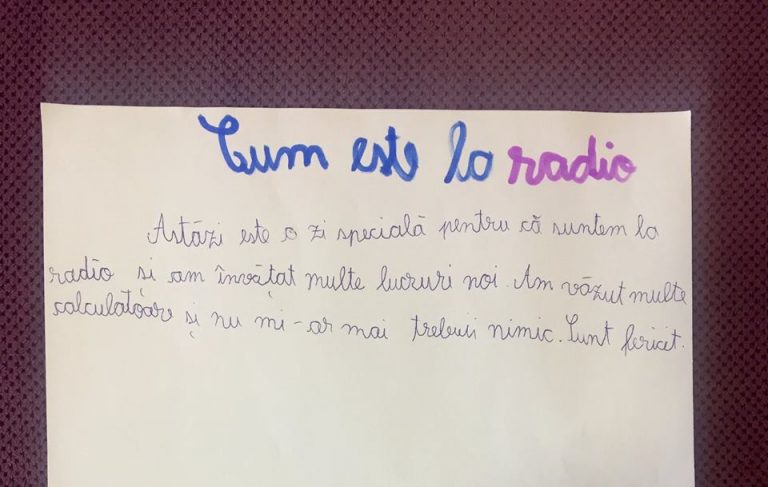 Cum este la radio
Astăzi este o zi specială pentru că suntem la
radio și am învățat multe lucruri noi. Am văzut multe
calculatoare și nu mi-ar mai trebui nimic. Sunt fericit.